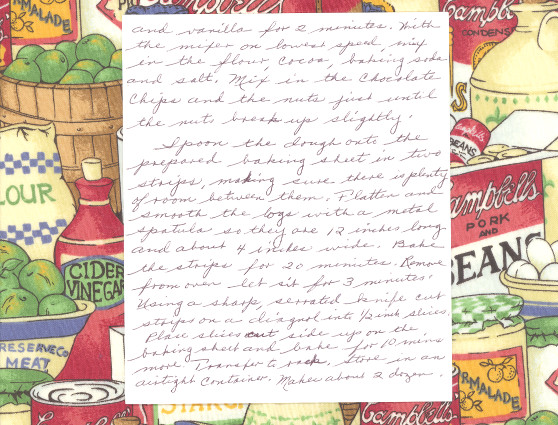 and vanilla for 2 minutes. With
the mixer on lowest speed, mix
in the flour, cocoa, baking soda
and salt. Mix in the chocolate
chips and the nuts just until
the nuts break up slightly.
Spoon the dough onto the
prepared baking sheet in two
strips, making sure there is plenty
of room between them. Flatten and
smooth the logs with a metal
spatula so they are 12 inches long
and about 4 inches wide. Bake
the strips for 20 minutes. Remove
from oven let sit for 3 minutes.
Using a sharp serrated knife cut
strips on a diagnol into 1/2 inch slices
Place slices cut side up on the
baking sheet and bake for 10 mins
more. Transfer to rack, store in an
airtight container. Makes about 2 dozen.
Campbell's
CONDENS
OUR
CIDER
VINEGAR
PRESERVE CO
MEAT
STARCH
Campbell's
BEANS
Campbell's
PORK
AND
BEANS
RMALADE
RMALADE
Campbell's